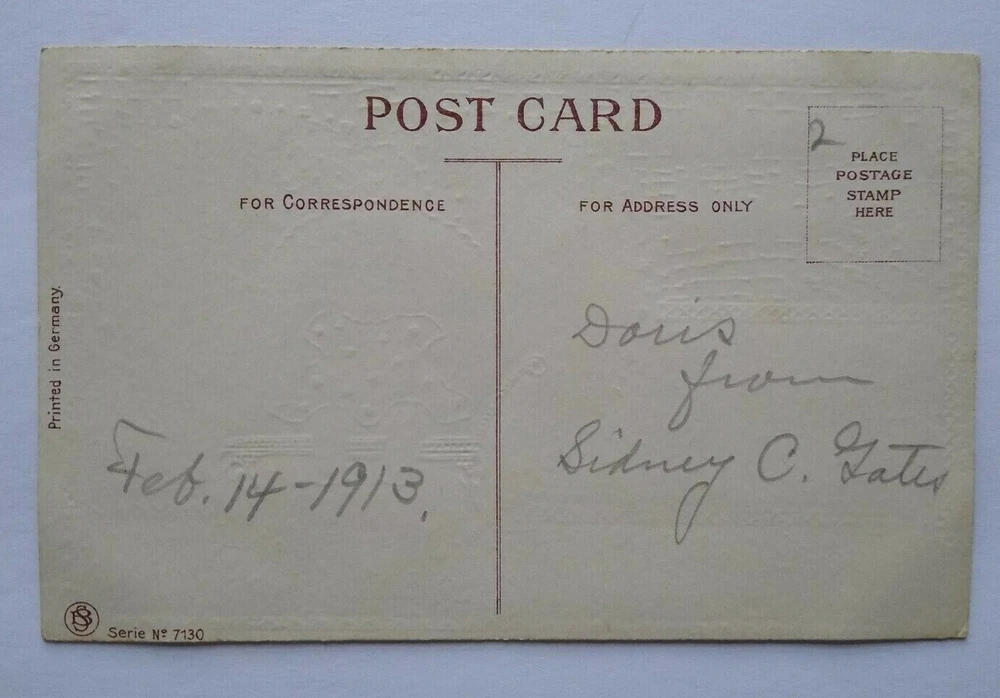 POST CARD
FOR CORRESPONDENCE
FOR ADDRESS ONLY
2
PLACE
POSTAGE
STAMP
HERE
Printed in Germany.
Doris
from
Sidney C. Gates
Feb. 14-1913.
Serie Nº 7130